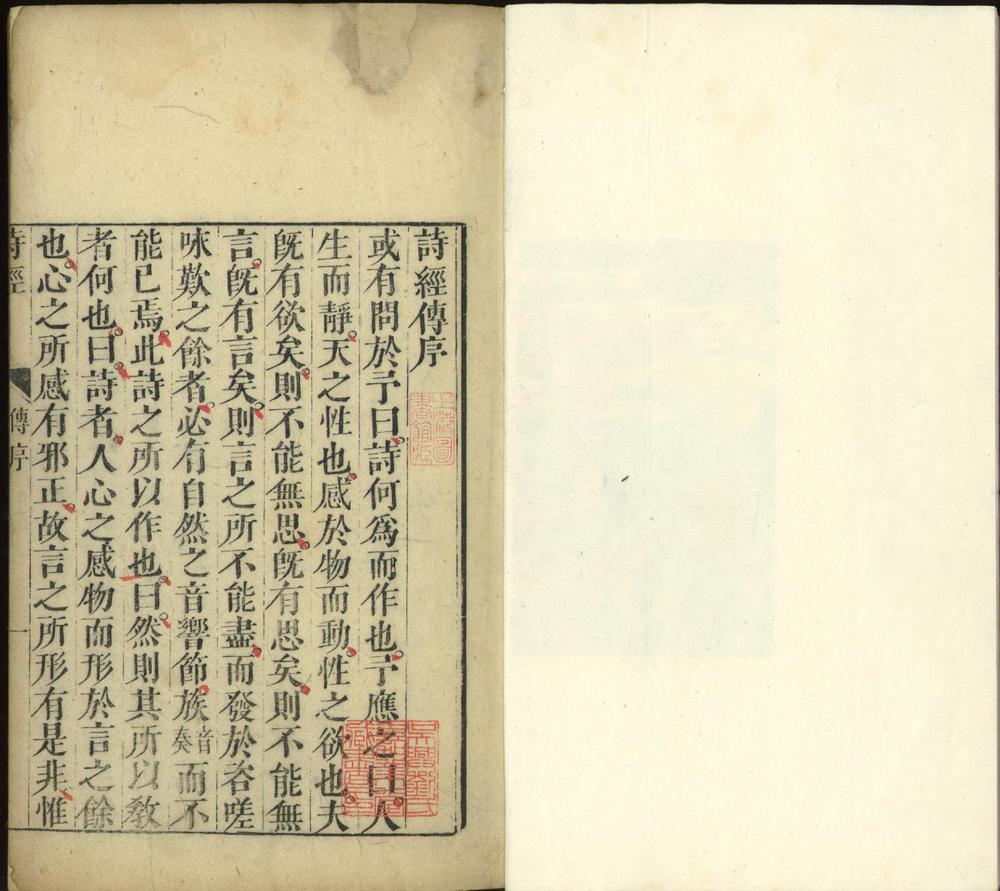 詩經傳序
或有問於予曰詩何爲而作也予應之曰人
生而靜天之性也感於物而動性之欲也夫
旣有欲矣則不能無思旣有思矣則不能無
言旣有言矣則言之所不能盡而發於咨嗟
咏歎之餘者必有自然之音響節族音奏而不
能已焉此詩之所以作也曰然則其所以敎
者何也曰詩者人心之感物而形於言之餘
也心之所感有邪正故言之所形有是非惟
詩經 傳序 一
上海圖書館藏
吳興劉氏嘉業堂藏書印